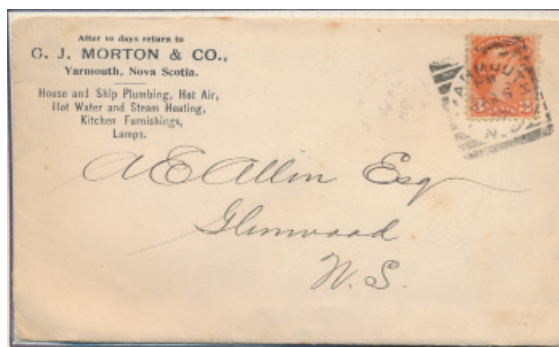 After 10 days return to
G. J. MORTON & CO.,
Yarmouth, Nova Scotia.
House and Ship Plumbing, Hot Air,
Hot Water and Steam Heating,
Kitchen Furnishings,
Lamps.
YARMOUTH
N.S.
A E Allin Esq
Glenwood
N. S.